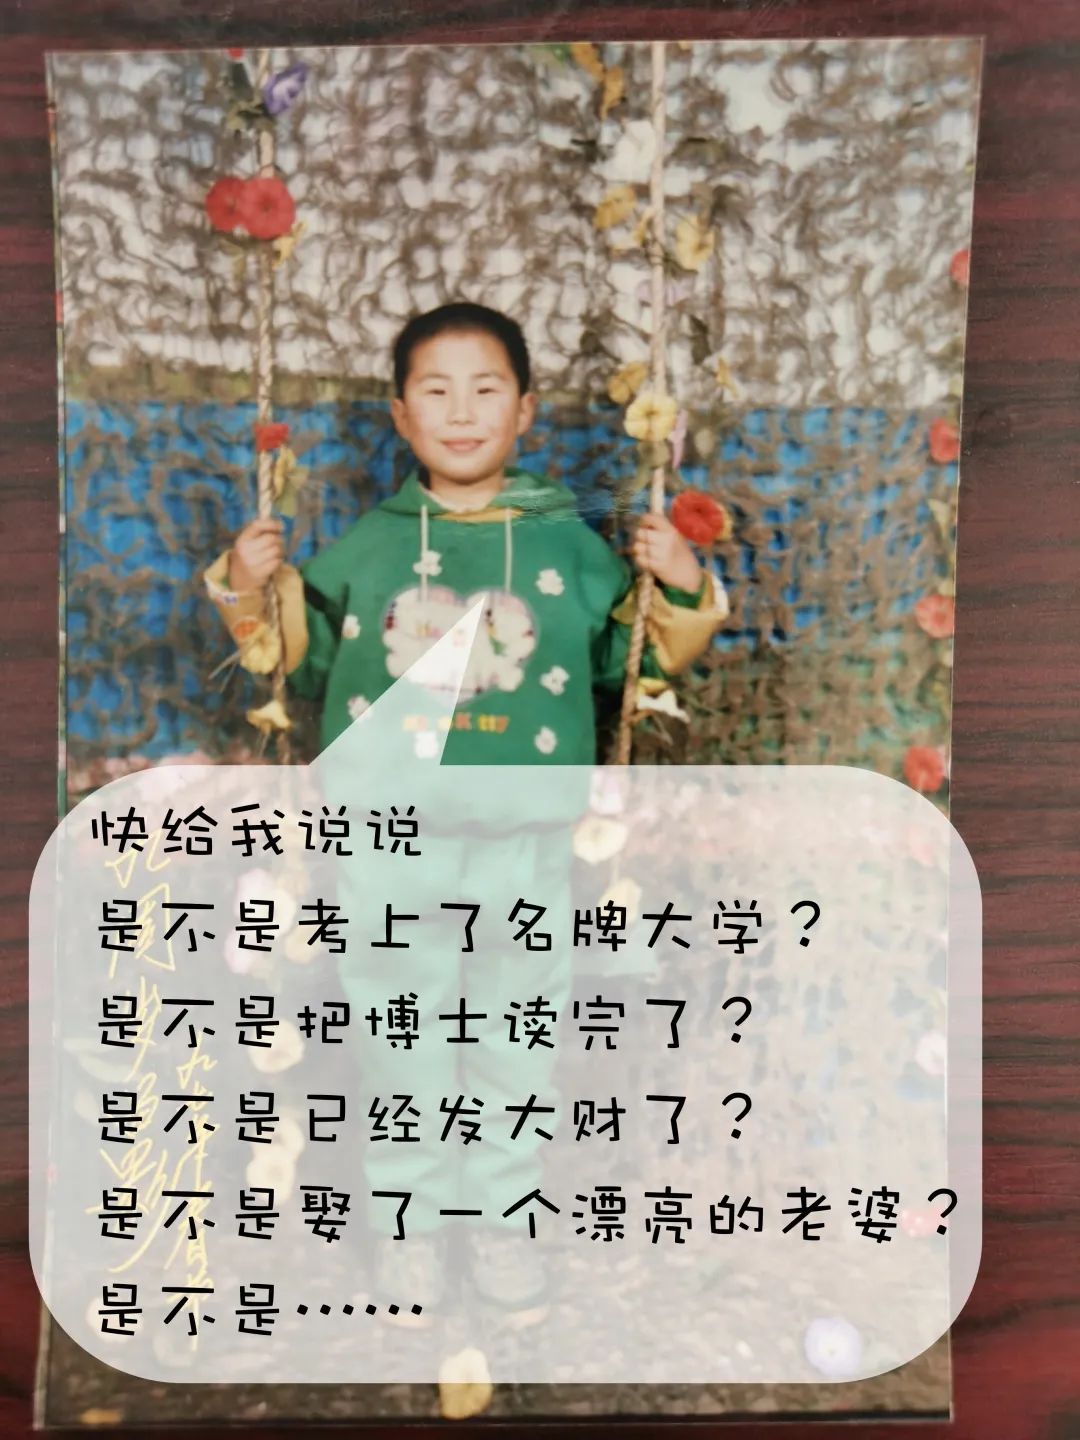 快给我说说
是不是考上了名牌大学？
是不是把博士读完了？
是不是已经发大财了？
是不是娶了一个漂亮的老婆？
是不是……
Kitty
九周岁留影